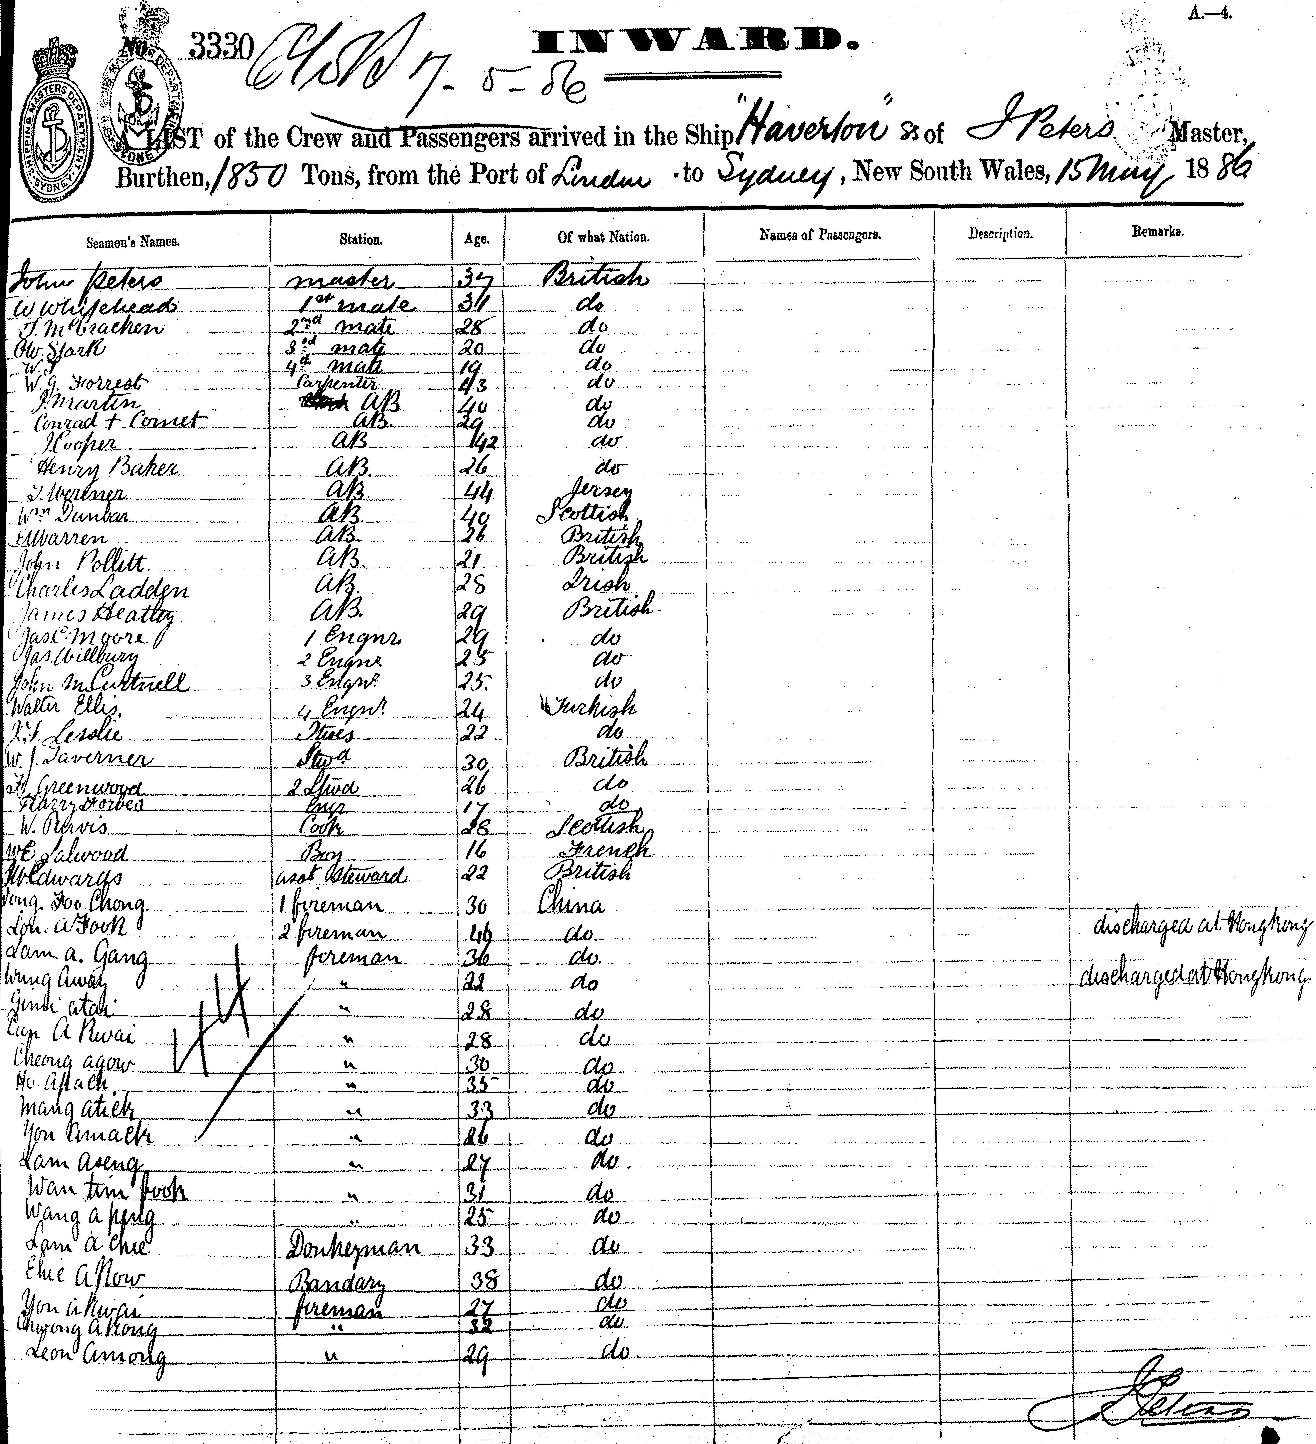 A.—4.
No. 3330
INWARD.
7-5-86
LIST of the Crew and Passengers arrived in the Ship "Haverton" ss of J Peters Master,
Burthen, 1850 Tons, from the Port of London to Sydney, New South Wales, 15 May 1886
Seamen's Names. Station. Age. Of what Nation. Names of Passengers. Description. Remarks.
John Peters master 37 British
W Whitehead 1st mate 31 do
J. McCracken 2nd mate 28 do
Stark 3rd mate 20 do
4th mate 19 do
W. G. Forrest Carpenter 43 do
J. Martin AB 40 do
Conrad + Comet AB 29 do
J Cooper AB 42 do
Henry Baker AB. 26 do
AB 44 Jersey
Wm Dunbar AB 40 Scottish
Warren AB. 26 British
John Pollitt. AB. 21 British
Charles Ladden AB. 28 Irish
James Heatley AB. 29 British
Jas C. Moore 1 Engnr 29 do
Jas. Willbury 2 Engnr 25 do
John McCurtnell 3 Engnr. 25. do
Walter Ellis. 4 Engnr. 24 Turkish
Lesslie 22 do
W. J. Taverner Stwd 30 British
Greenwood 2 Stwd 26 do
Harry Forbes 17 do
W. Purvis Cook 28 Scottish
Salwood Boy 16 French
Edwards asst Steward 22 British
Foo Chong 1 fireman 30 China
A Fook 2 fireman 40 do discharged at Hongkong
Lam a. Gang fireman 36 do
Wung Away " 22 do discharged at Hongkong
atai " 28 do
A Kwai " 28 do
Cheong agow " 30 do
Ho. " 35 do
Mang atick " 33 do
Yon " 26 do
Lam aseng " 27 do
Wan tim fook " 31 do
Wang a peng " 25 do
Lam a chee Donkeyman 33 do
A Kow Bandary 38 do
Yon a Kwai fireman 27 do
a Kong " 32 do
Leon among " 29 do
44
J Peters